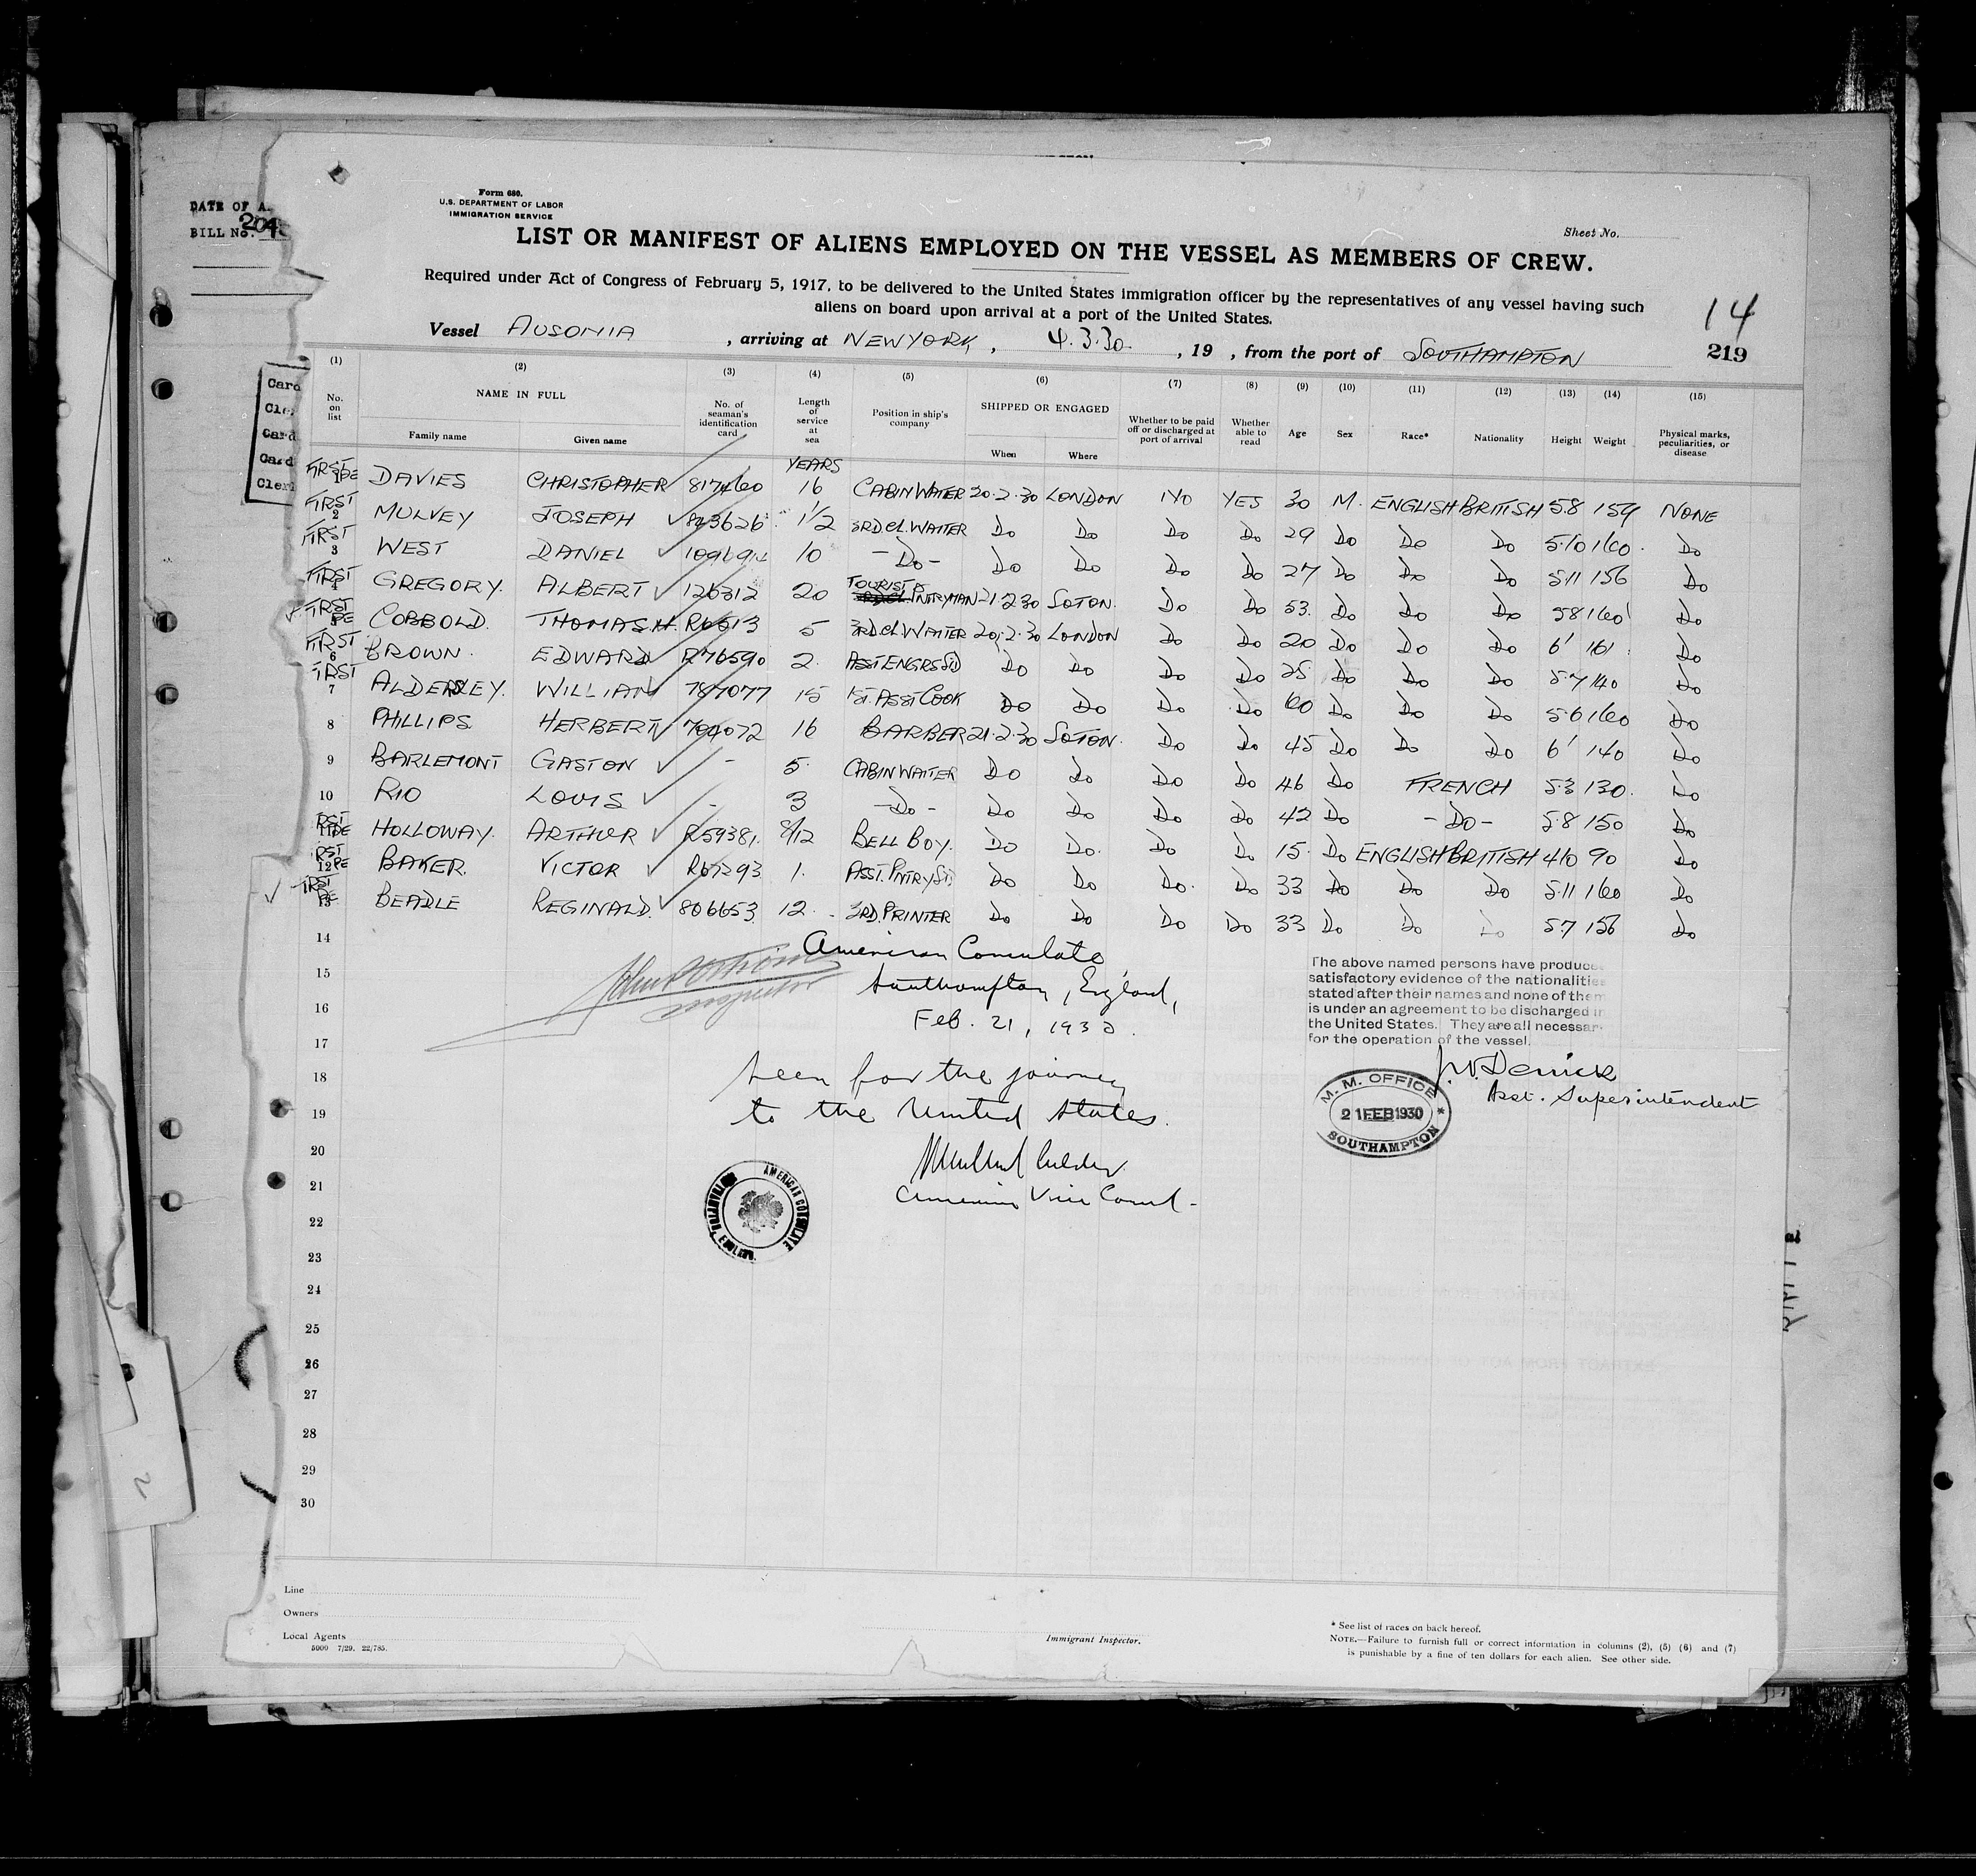 DATE OF A
BILL No.
Card
Cler
Card
Card
Cleri
Form 680.
U.S. DEPARTMENT OF LABOR
IMMIGRATION SERVICE
Sheet No.
LIST OR MANIFEST OF ALIENS EMPLOYED ON THE VESSEL AS MEMBERS OF CREW.
Required under Act of Congress of February 5, 1917, to be delivered to the United States immigration officer by the representatives of any vessel having such
aliens on board upon arrival at a port of the United States.
14
219
Vessel AUSONIA , arriving at NEW YORK , 4.3.30. , 19 , from the port of SOUTHAMPTON
(1) (2) (3) (4) (5) (6) (7) (8) (9) (10) (11) (12) (13) (14) (15)
No. on list NAME IN FULL Family name Given name No. of seaman's identification card Length of service at sea Position in ship's company SHIPPED OR ENGAGED When Where Whether to be paid off or discharged at port of arrival Whether able to read Age Sex Race* Nationality Height Weight Physical marks, peculiarities, or disease
YEARS
FIRST 1 DAVIES CHRISTOPHER 817460 16 CABIN WAITER 20.2.30 LONDON NO YES 30 M. ENGLISH BRITISH 5.8 159 NONE
FIRST 2 MULVEY JOSEPH 823626 1 1/2 3RD.Cl.WAITER Do Do Do Do 29 Do Do Do 5.10 160. Do
FIRST 3 WEST DANIEL 10 -Do- Do Do Do Do 27 Do Do Do 5.11 156 Do
FIRST 4 GREGORY. ALBERT 126312 20 TOURIST PNTRYMAN 21.2.30 SOTON. Do Do 53. Do Do Do 5.8 160 Do
FIRST 5 COBBOLD. THOMAS H. R6513 5 3RD.Cl.WAITER 20.2.30 LONDON Do Do 20 Do Do Do 6' 161 Do
FIRST 6 BROWN. EDWARD R76590 2. ASST ENGRS STD Do Do Do Do 25 Do Do Do 5.7 140 Do
FIRST 7 ALDERSLEY. WILLIAM 787077 15 1ST. ASST COOK Do Do Do Do 60 Do Do Do 5.6 160 Do
8 PHILLIPS HERBERT 704072 16 BARBER 21.2.30 SOTON. Do Do 45 Do Do Do 6' 140 Do
9 BARLEMONT GASTON - 5. CABIN WAITER Do Do Do Do 46 Do FRENCH 5.3 130. Do
10 RIO LOUIS - 3 -Do- Do Do Do Do 42 Do -Do- 5.8 150 Do
11 HOLLOWAY. ARTHUR R59381. 8/12 BELL BOY. Do Do. Do Do 15. Do ENGLISH BRITISH 4.10 90 Do
12 BAKER. VICTOR R67293 1. ASST. PNTRY STD Do Do Do. Do 33 Do Do Do 5.11 160 Do
FIRST 13 BEADLE REGINALD. 806653 12. 3RD. PRINTER Do Do Do Do 33 Do Do Do 5.7 156 Do
14
15
16
17
18
19
20
21
22
23
24
25
26
27
28
29
30
American Consulate
Southampton, England,
Feb. 21, 1930.
Seen for the journey
to the United States.
American Vice Consul -
AMERICAN CONSULATE
SOUTHAMPTON, ENGLAND.
The above named persons have produce
satisfactory evidence of the nationalitie
stated after their names and none of them
is under an agreement to be discharged in
the United States. They are all necessar
for the operation of the vessel.
Asst. Superintendent
M. M. OFFICE
21 FEB 1930
SOUTHAMPTON
Line
Owners
Local Agents
5000 7/29. 22/785.
Immigrant Inspector.
* See list of races on back hereof.
NOTE.—Failure to furnish full or correct information in columns (2), (5) (6) and (7)
is punishable by a fine of ten dollars for each alien. See other side.